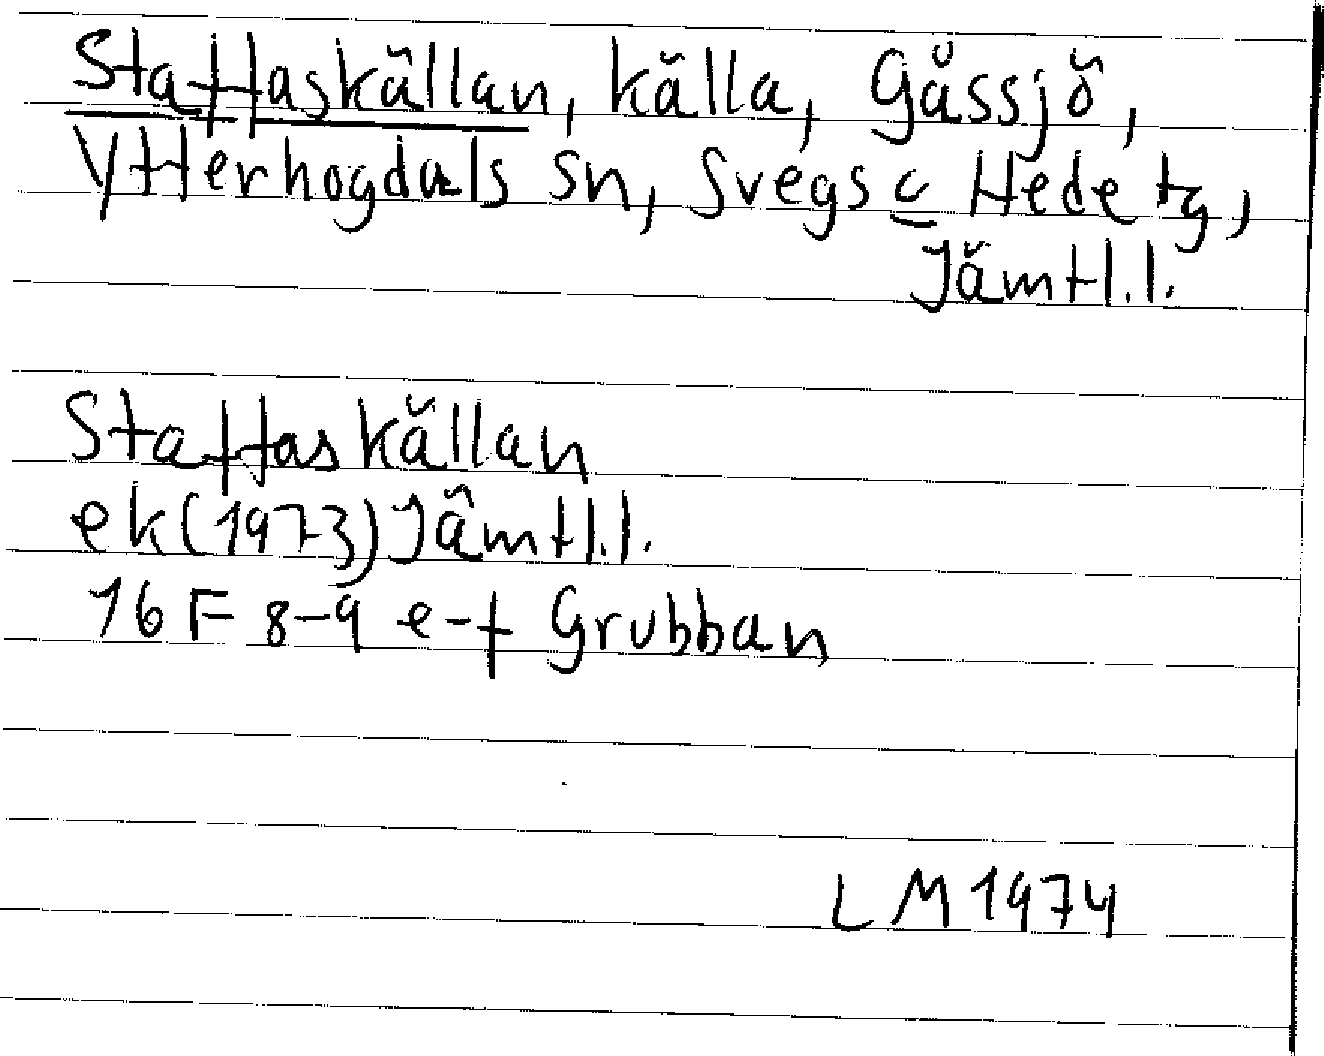 Staffaskällan, källa, Gåssjö,
Ytterhogdals sn, Svegs o Hede tg,
Jämtl.l.
Staffaskällan
ek (1973) Jämtl.l.
16 F 8-9 e-f Grubban
LM 1974